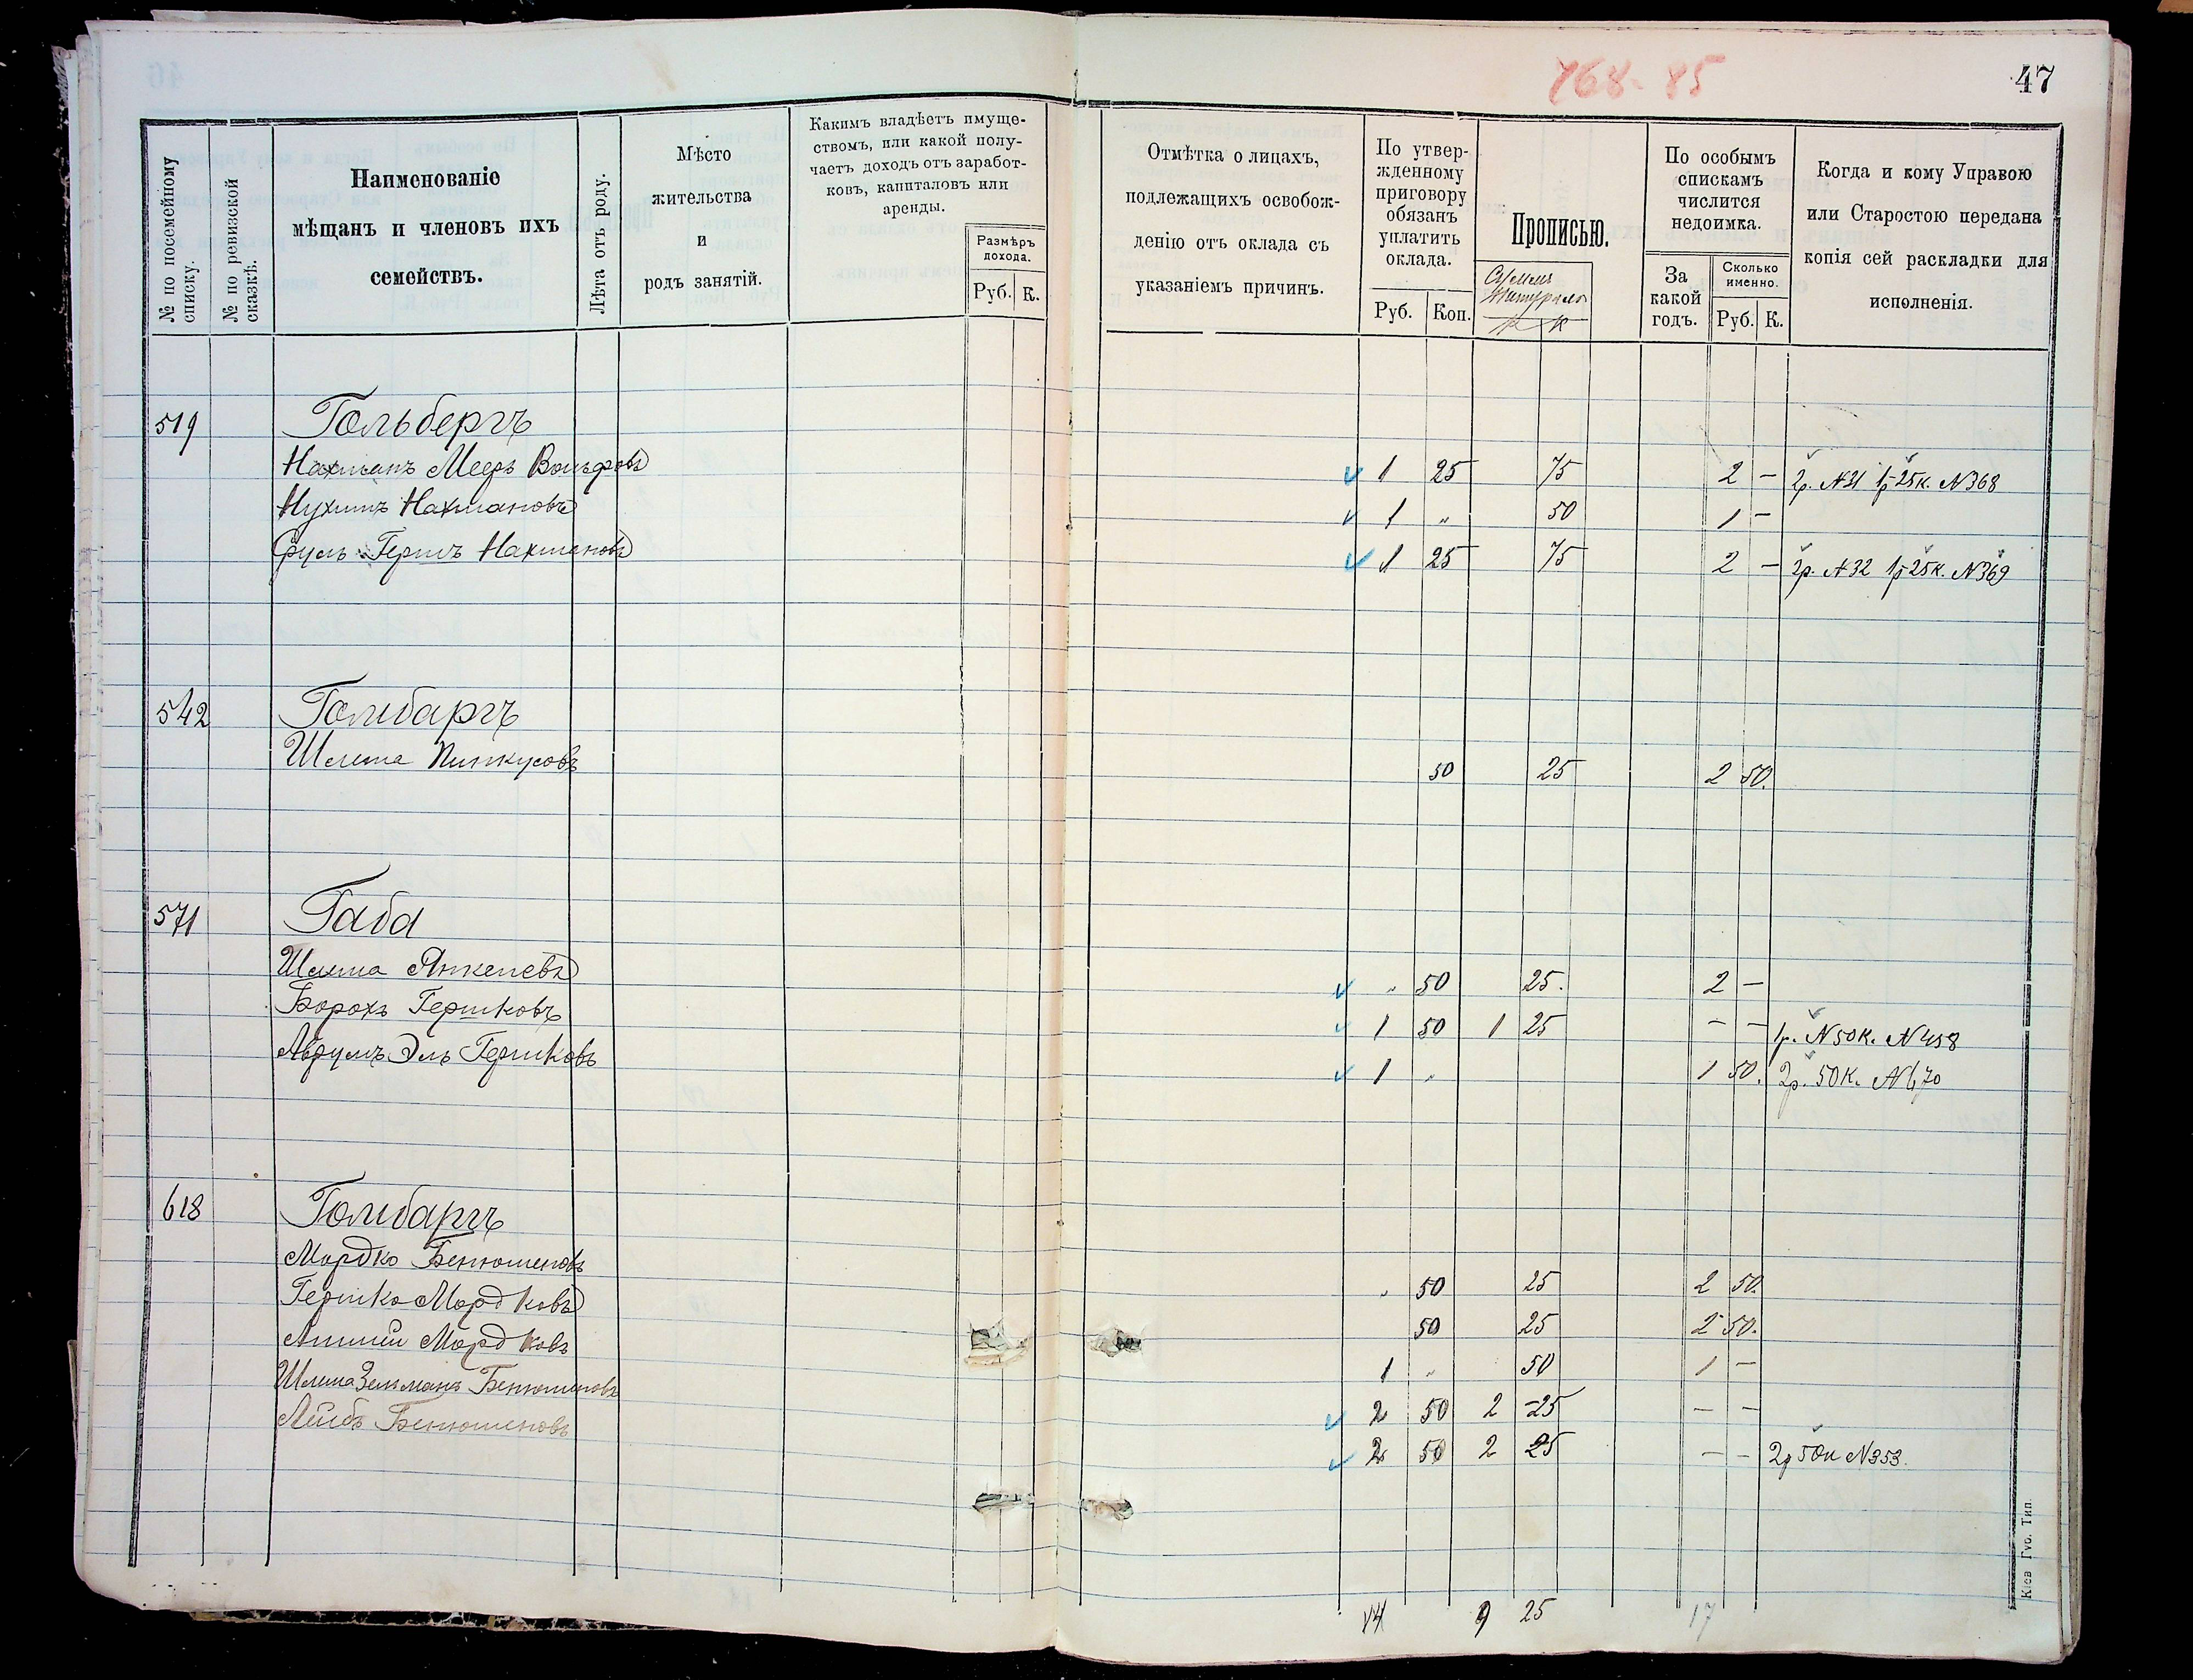 168-85
47
№ по посемейному списку.
№ по ревизской сказкѣ.
Наименованіе
мѣщанъ и членовъ ихъ
семействъ.
Лѣта отъ роду.
Мѣсто
жительства
и
родъ занятій.
Какимъ владѣетъ имуще-
ствомъ, или какой полу-
чаетъ доходъ отъ заработ-
ковъ, капиталовъ или
аренды.
Размѣръ
дохода.
Руб. К.
Отмѣтка о лицахъ,
подлежащихъ освобож-
денію отъ оклада съ
указаніемъ причинъ.
По утвер-
жденному
приговору
обязанъ
уплатить
оклада.
Руб. Коп.
Прописью.
Р К
По особымъ
спискамъ
числится
недоимка.
За
какой
годъ.
Сколько
именно.
Руб. К.
Когда и кому Управою
или Старостою передана
копія сей раскладки для
исполненія.
519 Гольбергъ
Нахманъ Мееръ Вольфовъ 1 25 75 2 – 2р. №21 1р 25к. №368
Нухимъ Нахмановъ 1 „ 50 1 –
Сруль Гершъ Нахмановъ 1 25 75 2 – 2р. №32 1р 25к. №369
542 Голибаргъ
Шлема Пинкусовъ 50 25 2 50.
571 Габа
Шлема Янкелевъ „ 50 25. 2 –
Борохъ Гершковъ 1 50 1 25 – – 1р. №50к. №458
Аврумъ Эль Гершковъ 1 „ 1 50. 2р. 50к. №670
618 Голибаргъ
Мордко Бенюменовъ „ 50 25 2 50.
Гершко Мордковъ 50 25 2 50.
Мордковъ 1 „ 50 1 –
Шлема Зельманъ Бенюминовъ 2 50 2 25 – –
Лейбъ Бенюменовъ 2 50 2 25 – – 2р 50к №353.
14 9 25 17
Кіев. Губ. Тип.